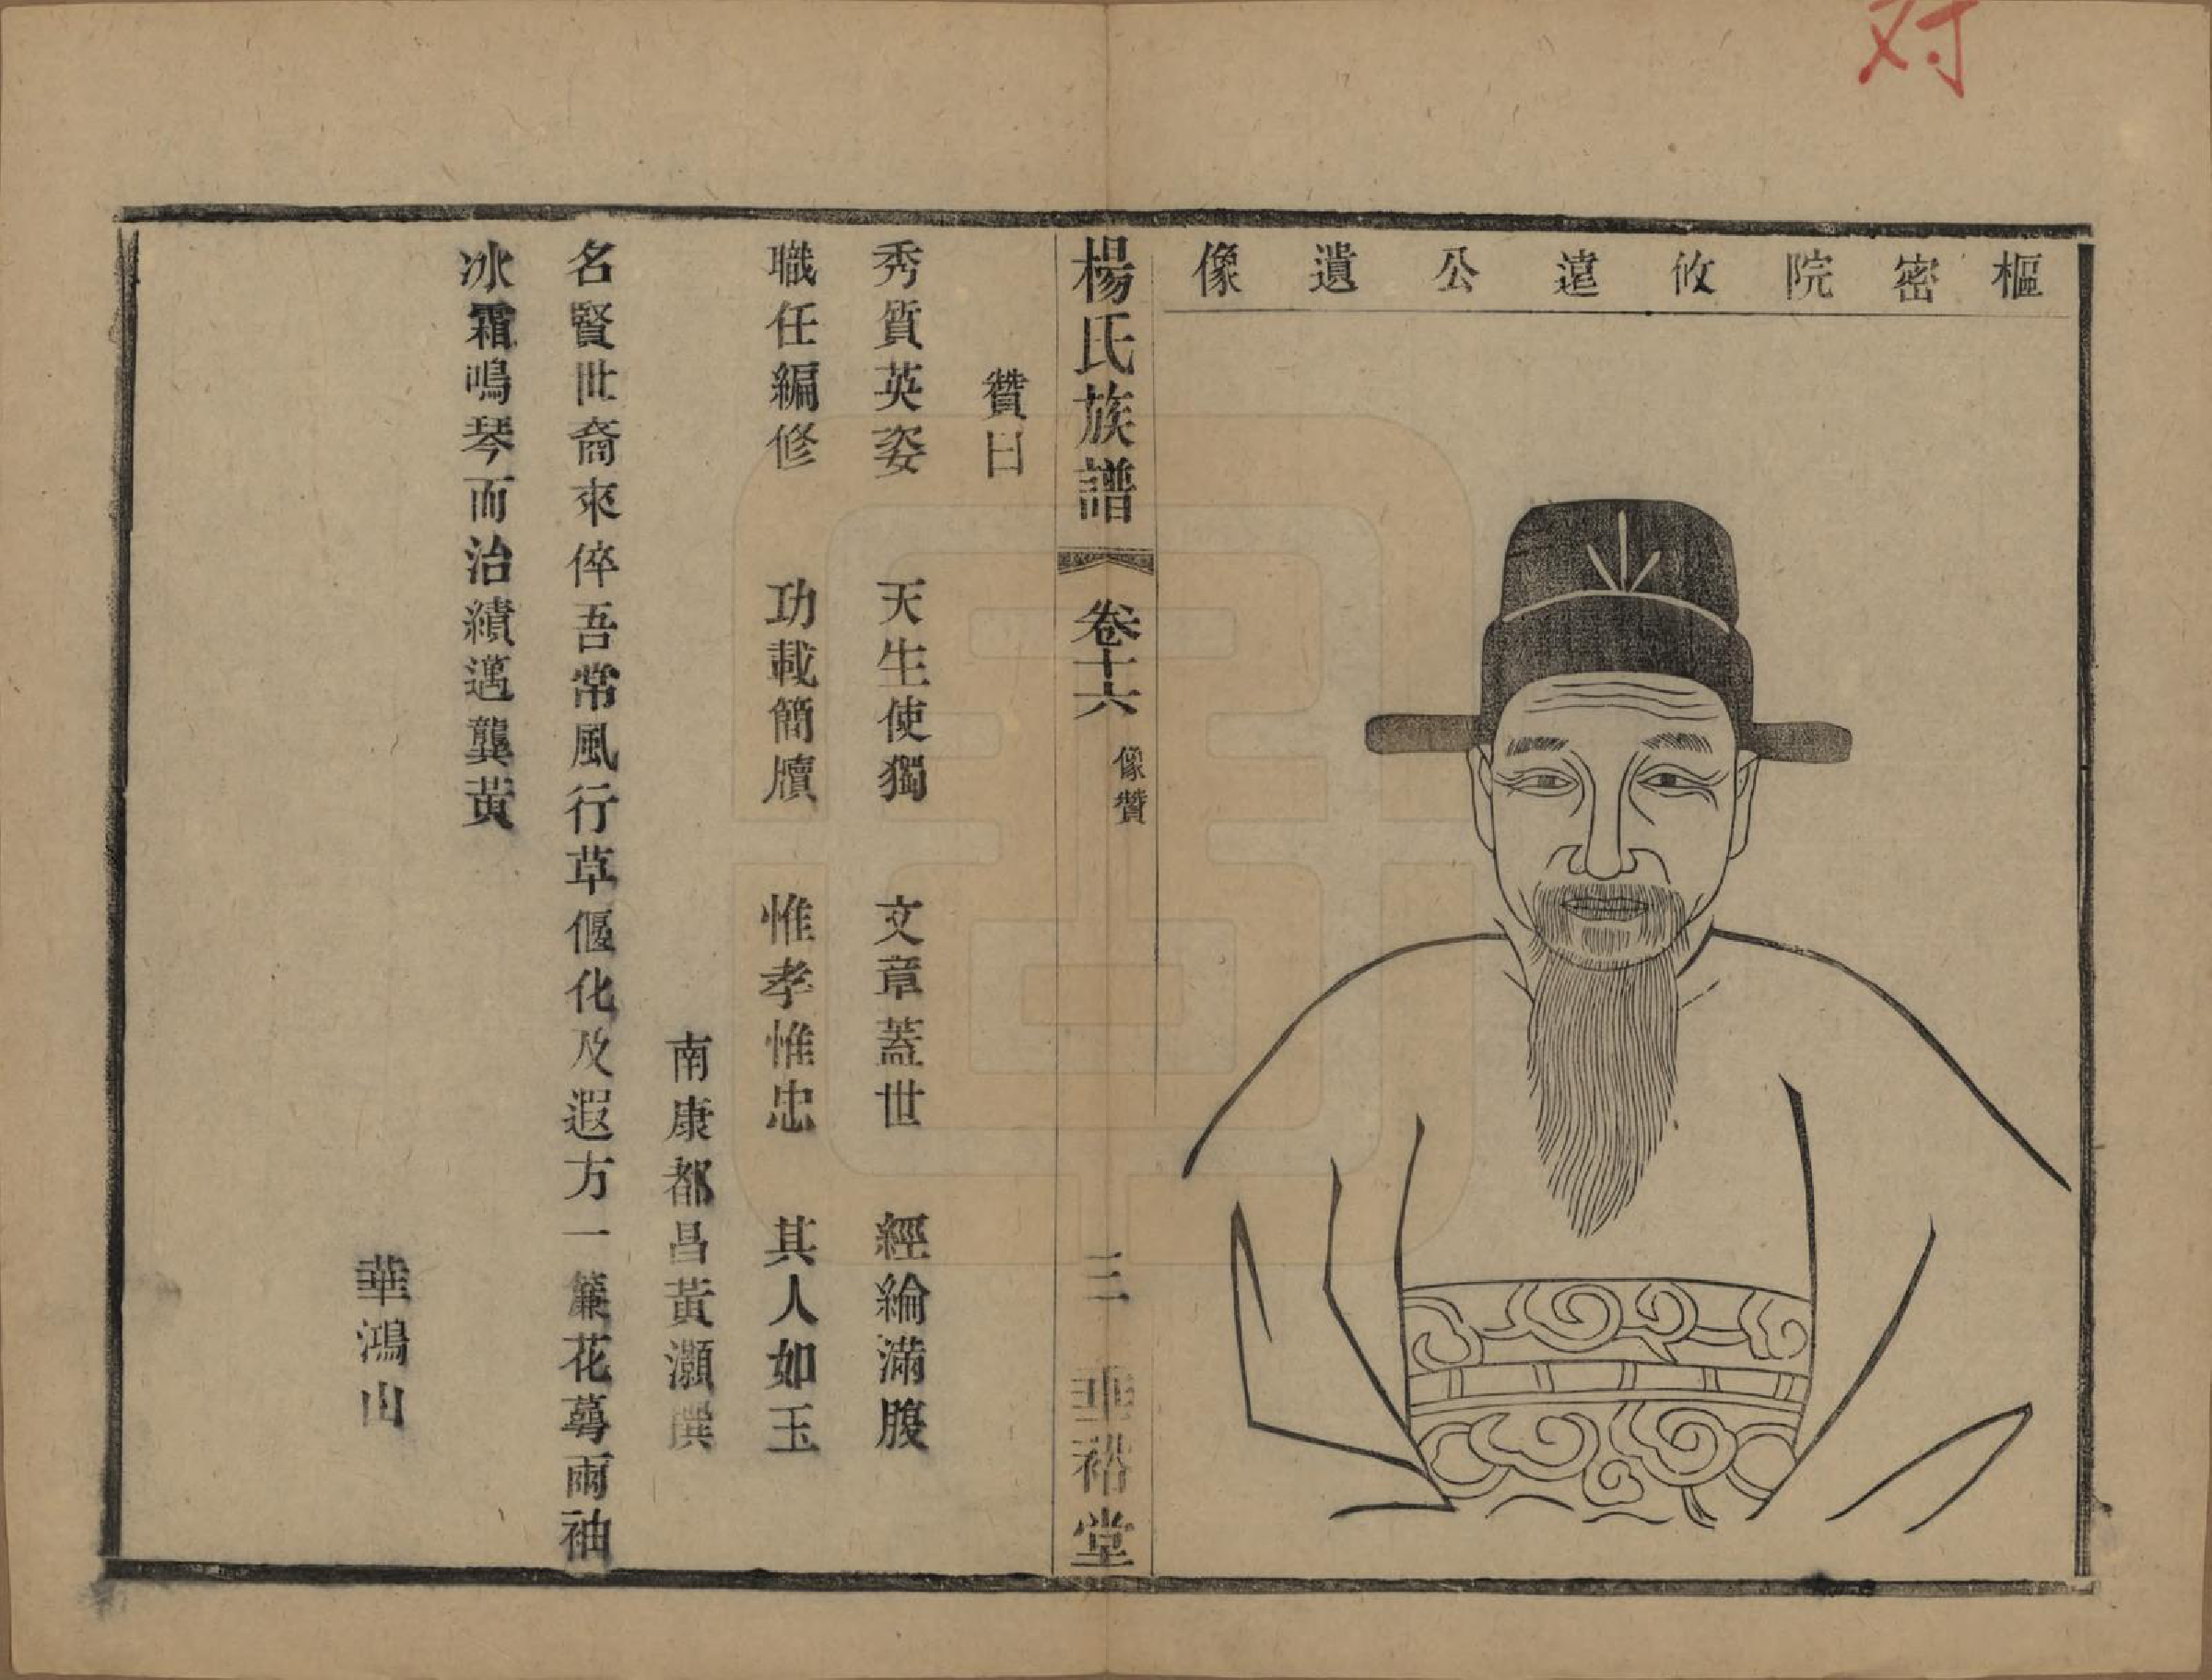 对
樞密院攸遠公遺像
楊氏族譜
卷十六
像贊
三
垂裕堂
贊曰
秀質英姿 天生使獨 文章蓋世 經綸滿腹
職任編修 功載簡牘 惟孝惟忠 其人如玉
南康都昌黃灝撰
名賢世裔來倅吾常風行草偃化及遐方一簾花蕚兩袖
冰霜鳴琴而治績邁龔黃
華鴻山